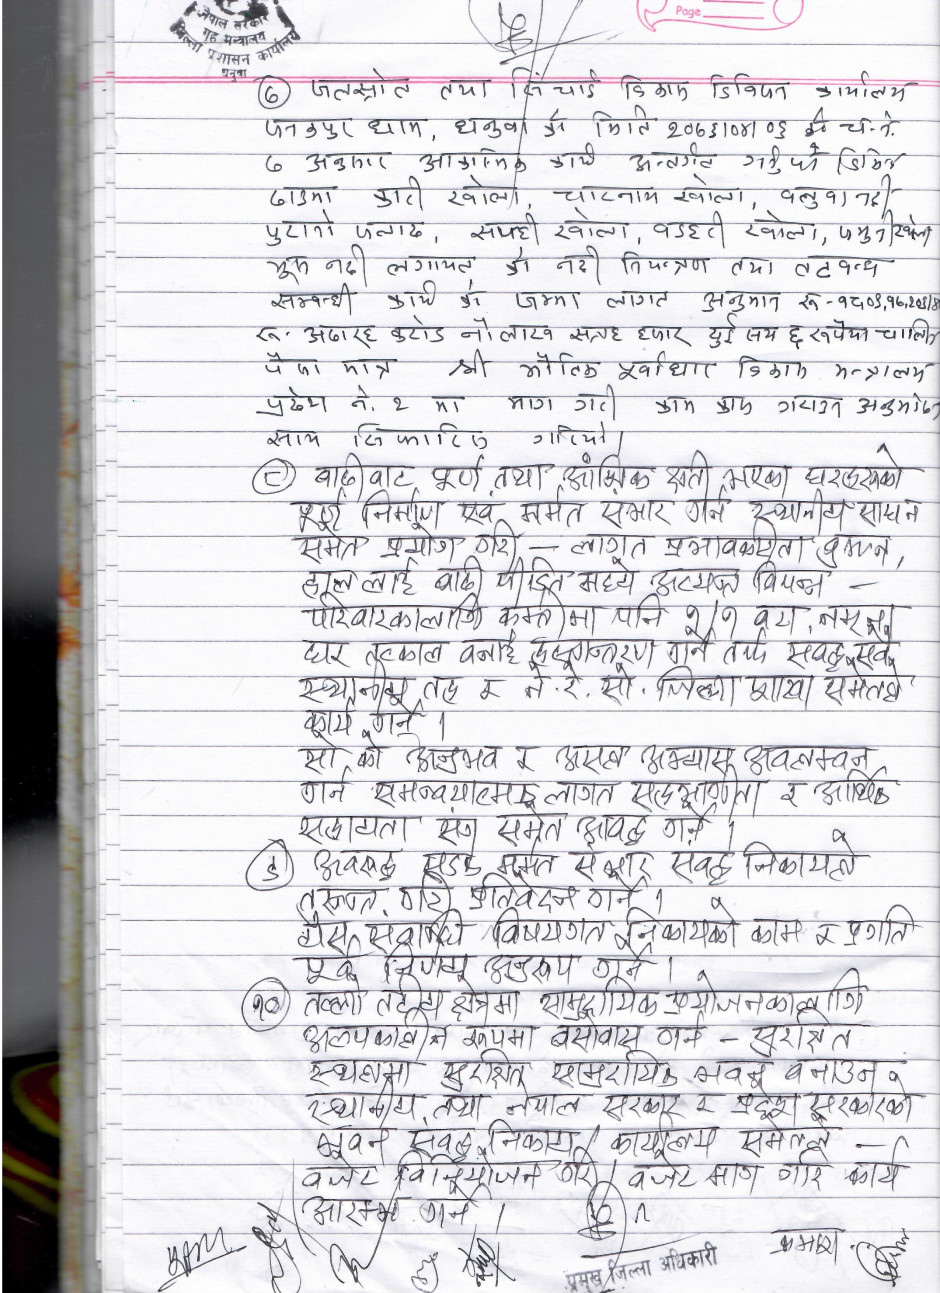 Page
नेपाल सरकार
गृह मन्त्रालय
जिल्ला प्रशासन कार्यालय
धनुषा
७ जलस्रोत तथा सिंचाई विकास डिभिजन कार्यालय
जनकपुर धाम, धनुषा को मिति २०७६।०४।०६ को च.नं.
७ अनुसार आकस्मिक कार्य अन्तर्गत गर्नुपर्ने विभिन्न
ठाउमा खोला, खोला, नदी
पुरानो जलाद, सपही खोला, वडहरी खोला, जमुनी खोला
नदी लगायत को नदी नियन्त्रण तथा तटवन्ध
सम्वन्धी कार्य को जम्मा लागत अनुमान रू-
रू. अठारह करोड नौ लाख सत्रह हजार दुई सय छ रूपैया चालिस
पैसा मात्र श्री भौतिक पूर्वाधार विकास मन्त्रालय
प्रदेश नं. २ मा माग गरी काम गराउन अनुमोदन
साथ सिफारिस गरियो।
८ बाढीवाट पूर्ण तथा आंशिक क्षती भएका घरहरूको
पूर्ण निर्माण एवं मर्मत संभार गर्न स्थानीय साधन
समेत प्रयोग गरि – लागत प्रभावकारीता
हाल लाई बाढी पीडित मध्ये अत्यन्त विपन्न –
परिवारकालागि कम्तीमा पनि १/१ वटा नमूना
घर तत्काल वनाई हस्तान्तरण गर्न तर्फ सवद्ध सवै
स्थानीय तह र ने.रे.सो. जिल्ला शाखा समेतले
कार्य गर्ने।
सो को अनुभव र असल अभ्यास अवलम्वन
गर्न समन्वयात्मक लागत सहभागिता र आर्थिक
सहायता संग समेत आवद्ध गर्ने।
९ अवरूद्ध सडक मर्मत संभार सवद्ध निकायले
तुरून्त गरि प्रतिवेदन गर्ने।
यस सवन्धि विषयगत निकायको काम र प्रगति
पूर्व निर्णय अनुरूप गर्ने।
१० तल्लो तटीय क्षेत्रमा सामुदायिक प्रयोजनकालागि
अल्पकालीन रूपमा वसोवास गर्न – सुरक्षित
स्थलमा सुरक्षित सामुदायिक भवन वनाउन
स्थानीय तथा नेपाल सरकार र प्रदेश सरकारको
भवन सवद्ध निकाय / कार्यालय समेतले –
वजेट विनियोजन गरि / वजेट माग गरि कार्य
आरम्भ गर्ने।
प्रमुख जिल्ला अधिकारी
क्रमश.